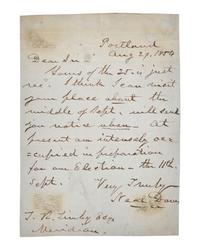 Portland
Aug 29, 1884
Dear Sir
Yours of the 25 is just
rec'. I think I can visit
your place about the
middle of Sept. will send
you notice when. At
present am intensely oc-
cupied in preparation
for our Election - the 11th
Sept. Very Truly
Neal Dow
T. H. Esq
Meridian.